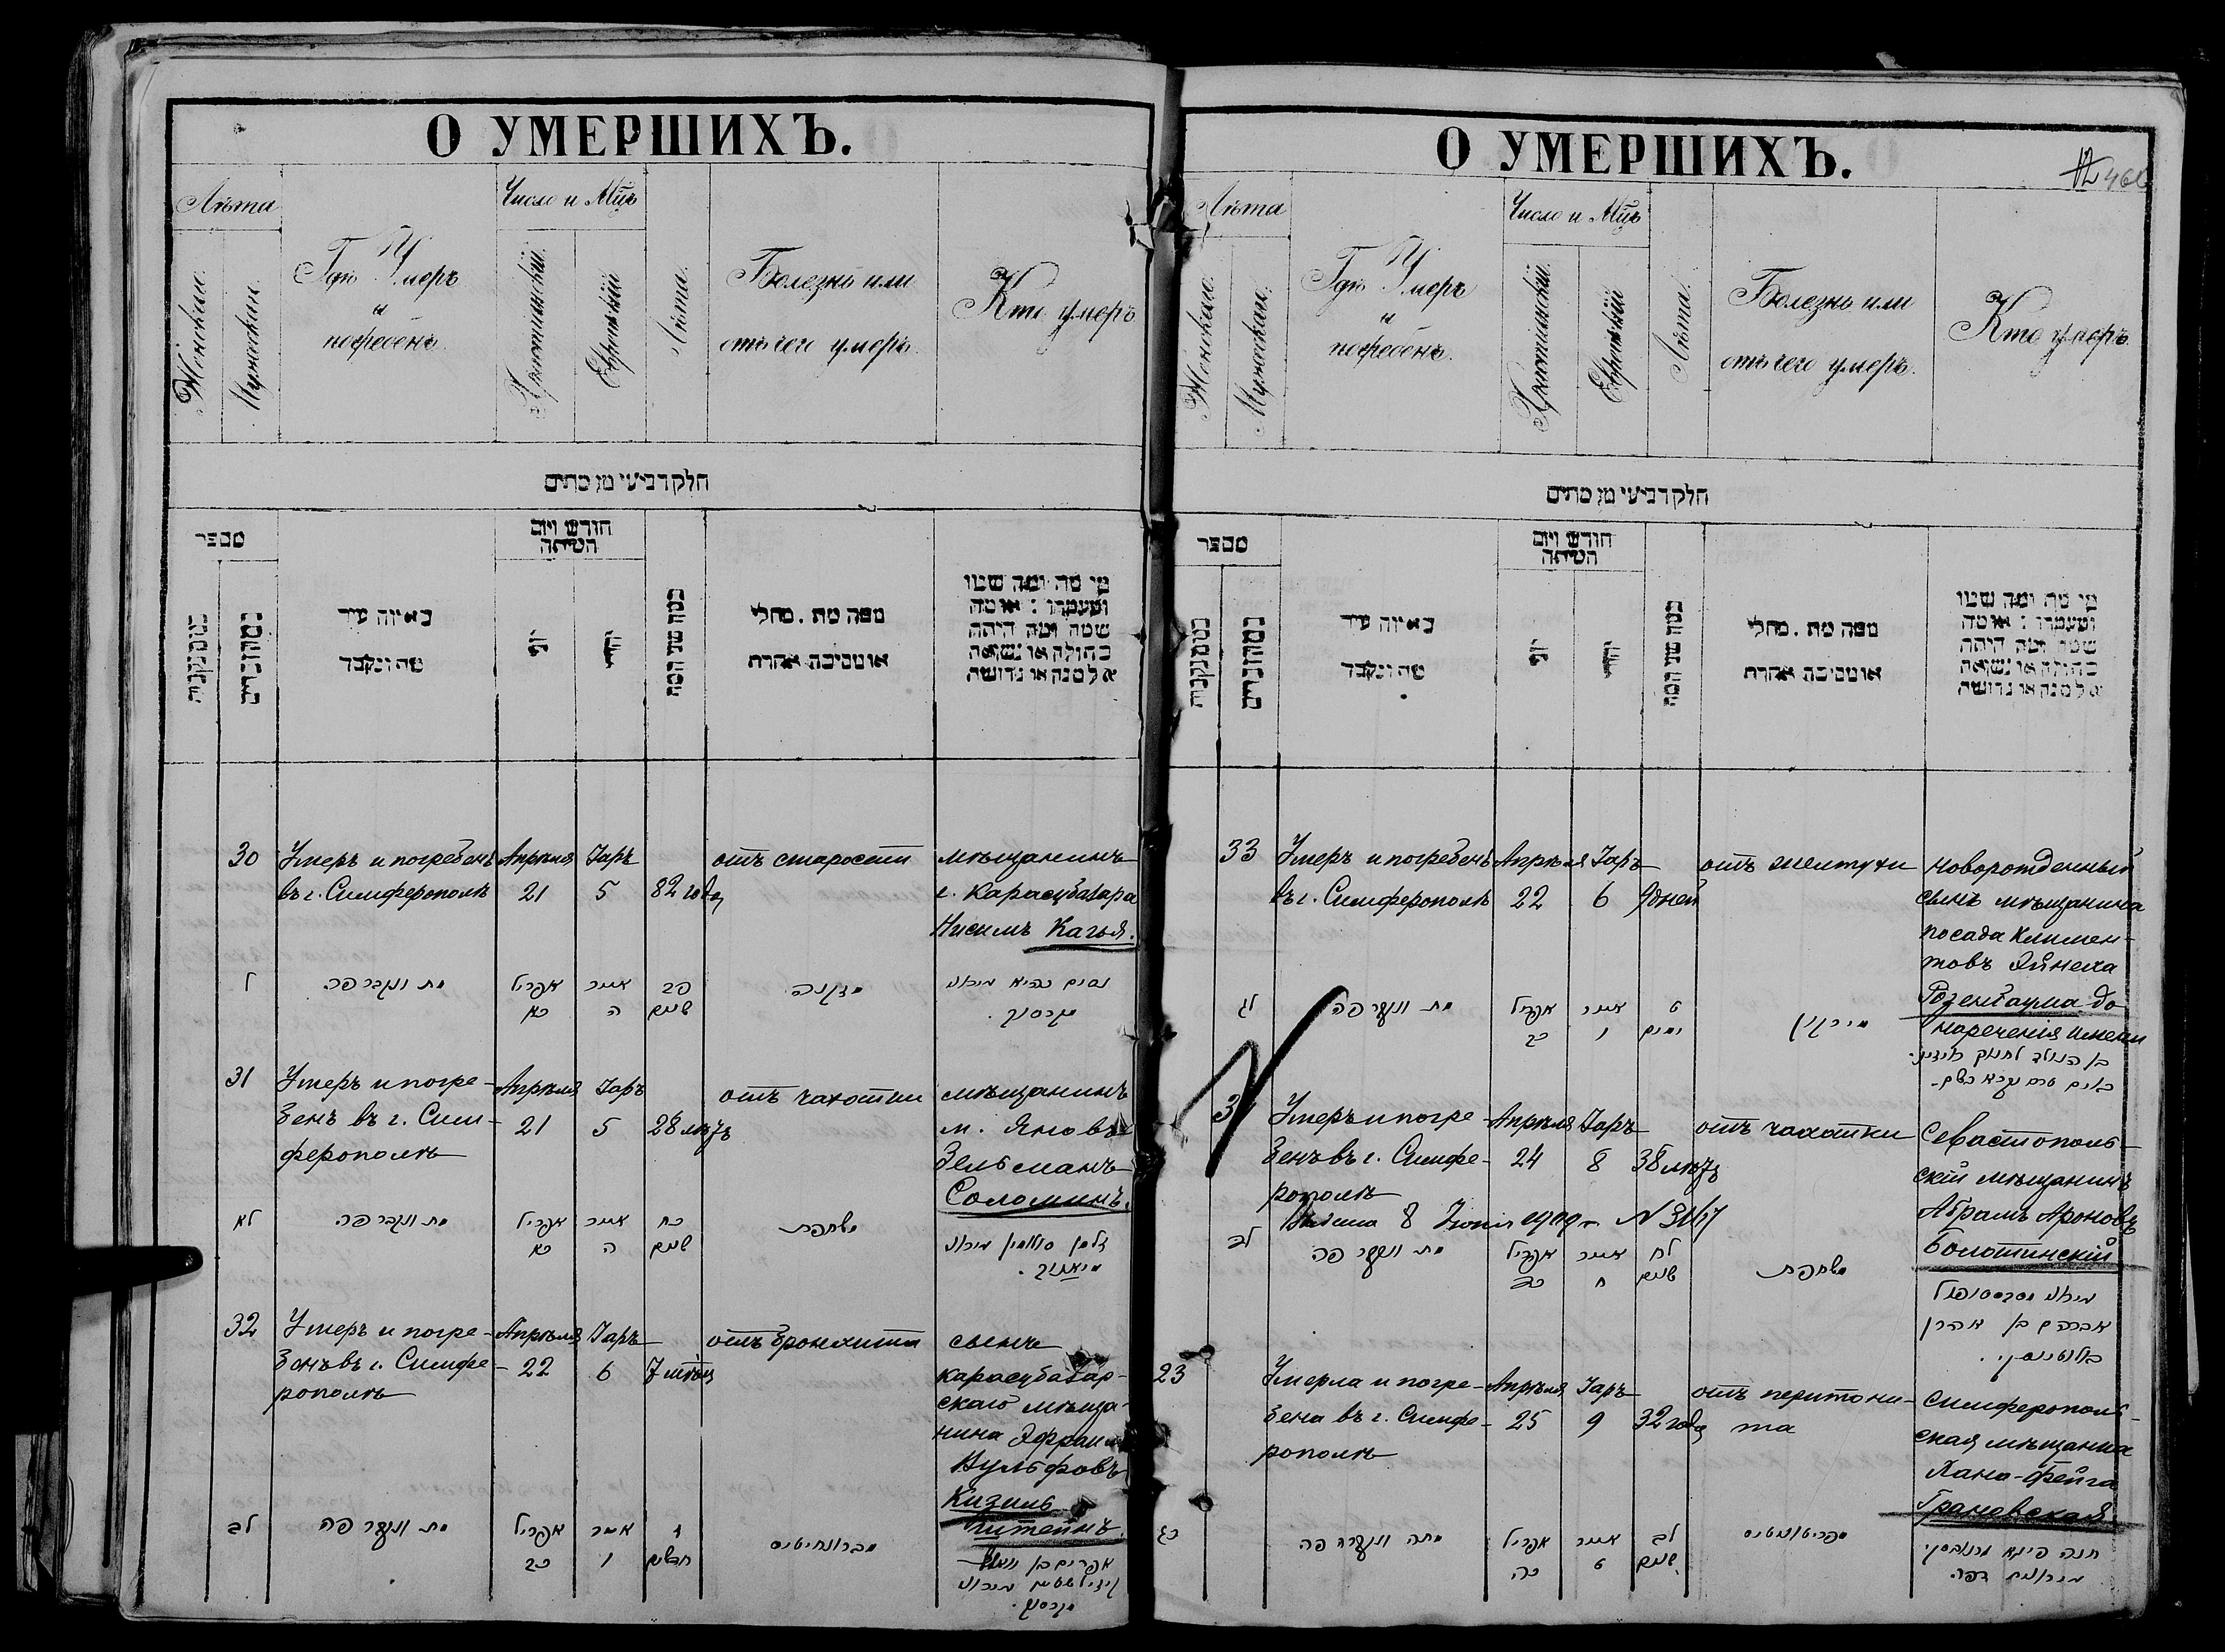 О УМЕРШИХЪ.
Лѣта
Женскии.
Мужескии.
Гдѣ Умеръ
и
погребенъ.
Число и Мцъ
Христіанскій.
Еврейскій
Лѣта.
Болезнь или
отъ чего умеръ.
Кто умеръ
חלק רביעי מן מתים
מספר
באיזה עיר
מת ונקבר
חודש ויום
המיתה
ממה מת . מחלי
או מסיבה אחרת
מי מת ומה שמו
ומעמדו : או מה
שמה ומה היתה
בתולה או נשואה
אלמנה או גרושה
30
Умеръ и погребенъ
въ г. Симферополѣ
Апрѣля
21
Іаръ
5
82 года
отъ старости
мѣщанинъ
г. Карасубазара
Нисимъ Кагья.
ל
מת ונקבר פה
אפריל
כא
אייר
ה
פב
שנים
מזקנה
נסים כהיא
31
Умеръ и погре-
бенъ въ г. Сим-
ферополѣ
Апрѣля
21
Іаръ
5
28 лѣтъ
отъ чахотки
мѣщанинъ
м. Яновъ
Зельманъ
Соломинъ.
לא
מת ונקבר פה
אפריל
כא
אייר
ה
כח
שנים
משחפת
זלמן סולאמין
32
Умеръ и погре-
бенъ въ г. Симфе-
рополѣ
Апрѣля
22
Іаръ
6
7 мѣсц
отъ бронхита
сынъ
карасубазар-
скаго мѣща-
нина Эфраим
Вульфовъ
Кизиль
штейнъ.
לב
מת ונקבר פה
אפריל
כב
אייר
ו
ז
חדשים
מברונחיטיס
אפרים בן וואלף
О УМЕРШИХЪ.
12 466
Лѣта
Женскии.
Мужескии.
Гдѣ Умеръ
и
погребенъ.
Число и Мцъ
Христіанскій.
Еврейскій
Лѣта.
Болезнь или
отъ чего умеръ.
Кто умеръ.
חלק רביעי מן מתים
מספר
באיזה עיר
מת ונקבר
חודש ויום
המיתה
ממה מת . מחלי
או מסיבה אחרת
מי מת ומה שמו
ומעמדו : או מה
שמה ומה היתה
בתולה או נשואה
אלמנה או גרושה
33
Умеръ и погребенъ
въ г. Симферополѣ
Апрѣля
22
Іаръ
6
9 дней
отъ желтухи
новорожденный
сынъ мѣщанина
посада Климен-
товъ Эйнеха
Розенбаума до
наречения имени
לג
מת ונקבר פה
אפריל
כב
אייר
ו
ט
ימים
מירקון
3
Умеръ и погре-
бенъ въ г. Симфе-
рополѣ
Апрѣля
24
Іаръ
8
38 лѣтъ
отъ чахотки
Севастополь-
скій мѣщанинъ
Абрамъ Ароновъ
Болотинскій
8 Іюня 1909 г. N 3167
מת ונקבר פה
אפריל
כד
אייר
ח
לח
שנים
משחפת
אברהם בן אהרן
באלוטינסקי.
23
Умерла и погре-
бена въ г. Симфе-
рополѣ
Апрѣля
25
Іаръ
9
32 года
отъ перитони-
та
симферополь-
ская мѣщанка
Хана-Фейга
Грановская.
כג
מתה ונקברה פה
אפריל
כה
אייר
ט
לב
שנים
מפריטוניטיס
חנה פייגא גראנאווסקי